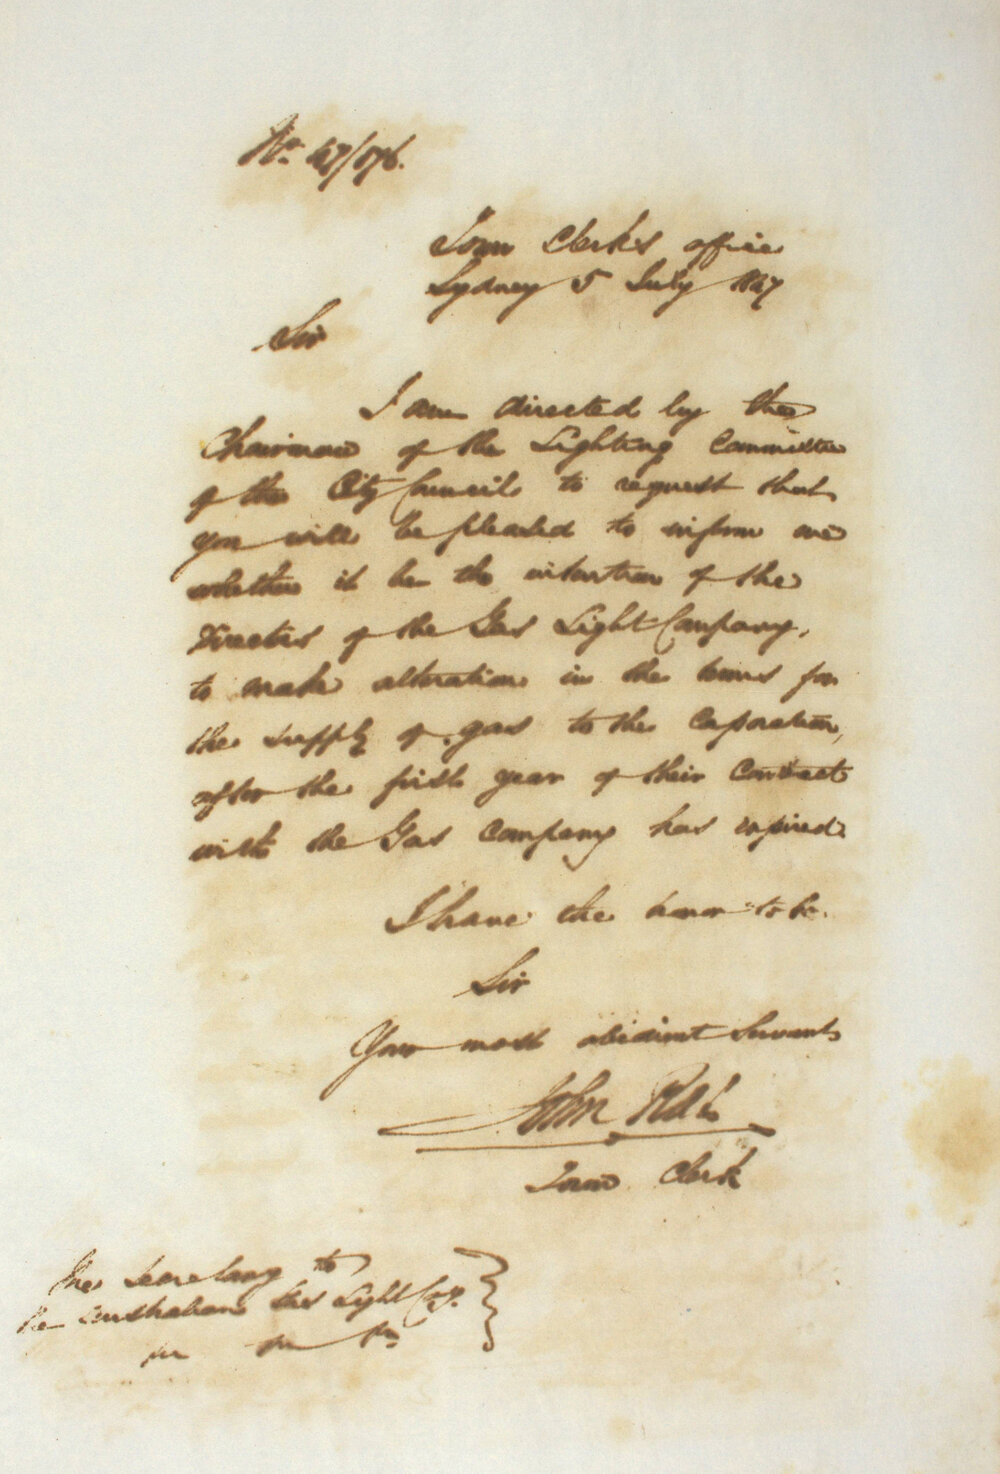 No. 47/076.
Town Clerk's office
Sydney 5 July 1847
Sir
I am directed by the
Chairman of the Lighting Committee
of the City Council to request that
you will be pleased to inform me
whether it be the intention of the
Directors of the Gas Light Company,
to make alteration in the terms for
the supply of gas to the Corporation,
after the first year of their Contract
with the Gas Company has expired
I have the honor to be
Sir
Your most obedient Servant
John Rae
Town Clerk
The Secretary to
the Australian Gas Light Coy.